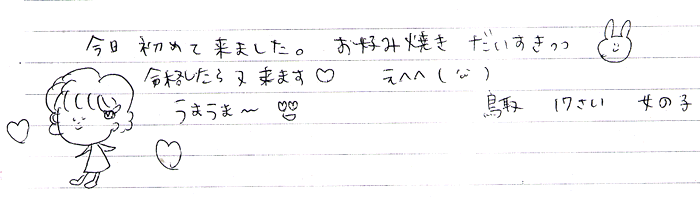 今日 初めて 来ました。 お好み焼き だいすきっっ
合格したら又来ます♡ えへへ(¨)
うまうま〜
鳥取 17さい 女の子